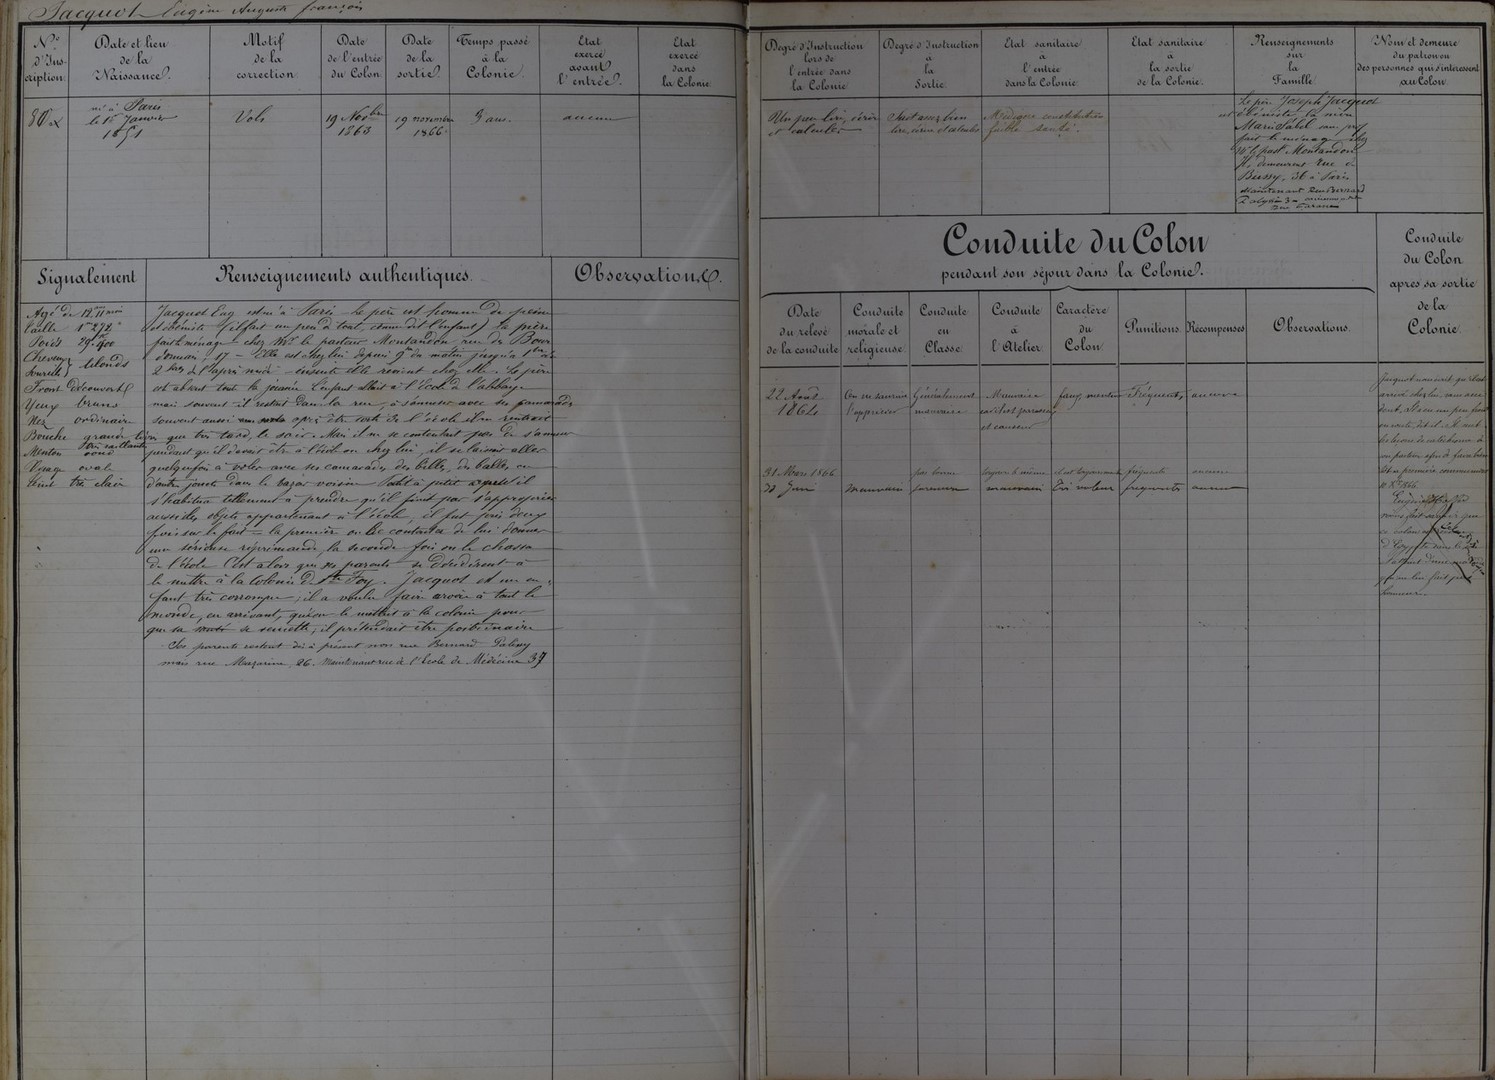 Jacquot Eugène Auguste françois
N.º d'Inscription
Date et lieu de la Naissance.
Motif de la correction
Date de l'entrée du Colon
Date de la sortie.
Temps passé à la Colonie.
Etat exercé avant l'entrée.
Etat exercé dans la Colonie
né à Paris
le 1er Janvier
1851
Vols
19 Novbre
1863
19 novembre
1866
3 ans.
aucun
Signalement
Renseignements authentiques.
Observations.
Agé de 12. 11 mois
Taille 1m 272
Poids
Cheveux
Sourcils } blonds
Front découvert
Yeux bruns
Nez ordinaire
Bouche grande
Menton rond
Visage ovale
Teint très clair
Jacquot Eug est né à Paris le père est homme de peine
et ébéniste (il fait un peu de tout, comme dit l'enfant) La mère
fait le ménage chez Mr le pasteur Montandon rue de
17 - Elle est chez lui depuis 9h du matin jusqu'à
2 hres de l'après midi - ensuite elle revient chez elle. Le père
est absent toute la journée L'enfant allait à l'école de l'abbaye
mais souvent il restait dans la rue, à s'amuser avec ses camarades
souvent aussi après être sorti de l'école il ne rentrait
que très tard, le soir. Mais il ne se contentait pas de s'amuser
pendant qu'il devait être à l'école ou chez lui, il se laissait aller
quelquefois à voler avec ses camarades, des billes, des balles, ou
d'autres jouets dans le bazar voisin Petit à petit il
s'habitua tellement à prendre qu'il finit par s'approprier
aussi des objets appartenant à l'école, il fut pris deux
fois sur le fait = la première on se contenta de lui donner
une sérieuse réprimande, la seconde fois on le chassa
de l'école C'est alors que ses parents se décidèrent à
le mettre à la Colonie de Ste Foy. Jacquot est un en-
fant très corrompu; il a voulu faire croire à tout le
monde, en arrivant, qu'on le mettait à la colonie pour
que sa santé se remette; il prétendait être pensionnaire
Ses parents restent dès à présent non rue Bernard Palissy
mais rue Mazarine, 26. Maintenant rue de l'Ecole de Médecine 37
Degré d'Instruction lors de l'entrée dans la Colonie
Degré d'Instruction à la Sortie.
Etat sanitaire à l'entrée dans la Colonie
Etat sanitaire à la sortie de la Colonie.
Renseignements sur la Famille
Nom et demeure du patron ou des personnes qui s'intéressent au Colon.
Un peu lire, écrire
et calculer
Sait assez bien
lire, écrire et calculer
Médiocre constitution
faible santé.
Le père Joseph Jacquot
est ébéniste, la mère
Marie
fait le ménage chez
Mr le past. Montandon
Ils demeurent Rue de
Bussy, 36 à Paris
Maintenant Rue Bernard
Palyssi 3
Conduite du Colon
pendant son séjour dans la Colonie.
Conduite du Colon après sa sortie de la Colonie.
Date du relevé de la conduite
Conduite morale et religieuse.
Conduite en Classe
Conduite à l'Atelier
Caractère du Colon
Punitions
Récompenses
Observations.
22 Août
1864
On ne saurait
l'apprécier
Généralement
mauvaise
Mauvaise
car il est paresseux
et causeur
faux menteur
Fréquentes
aucune
31 Mars 1866
pas bonne
toujours la même
il est toujours
fréquente
aucune
30 Juin
mauvaise
paresseux
mauvaise
Très voleur
fréquentes
aucune
Jacquot nous écrit qu'il est
arrivé chez lui sans
en route dit-il. Il suit
les leçons de catéchisme
du pasteur afin de faire bien
sa première communion
1866